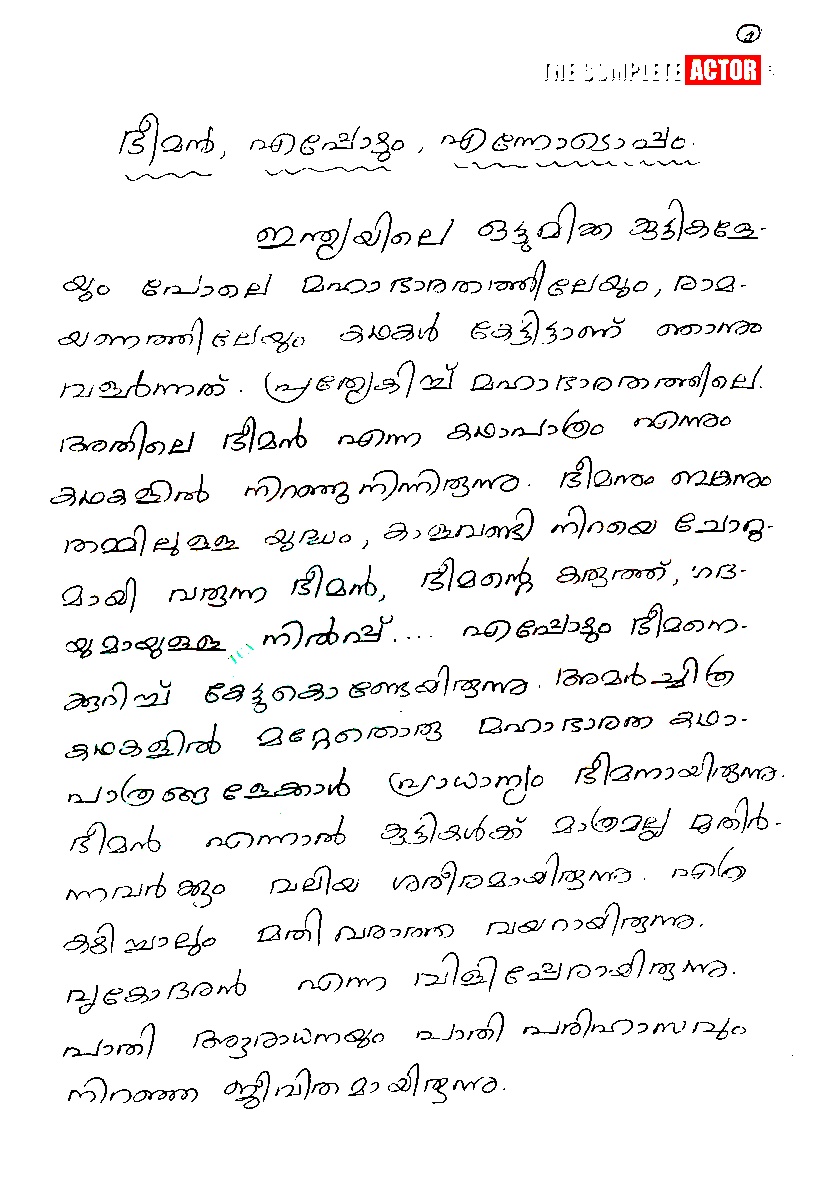 1
THE COMPLETE ACTOR
ഭീമൻ, എപ്പോഴും, എന്നോടൊപ്പം.
ഇന്ത്യയിലെ ഒട്ടുമിക്ക കുട്ടികളേ-
യും പോലെ മഹാഭാരതത്തിലേയും, രാമ-
യണത്തിലേയും കഥകൾ കേട്ടിട്ടാണ് ഞാനും
വളർന്നത്. പ്രത്യേകിച്ച് മഹാഭാരതത്തിലെ.
അതിലെ ഭീമൻ എന്ന കഥാപാത്രം എന്നും
കഥകളിൽ നിറഞ്ഞു നിന്നിരുന്നു. ഭീമനും ബകനും
തമ്മിലുള്ള യുദ്ധം, കാളവണ്ടി നിറയെ ചോറു-
മായി വരുന്ന ഭീമൻ, ഭീമന്റെ കരുത്ത്, ഗദ-
യുമായുള്ള നിൽപ്പ്.... എപ്പോഴും ഭീമനെ-
ക്കുറിച്ച് കേട്ടുകൊണ്ടേയിരുന്നു. അമർചിത്ര
കഥകളിൽ മറ്റേതൊരു മഹാഭാരത കഥാ-
പാത്രങ്ങളേക്കാൾ പ്രാധാന്യം ഭീമനായിരുന്നു.
ഭീമൻ എന്നാൽ കുട്ടികൾക്ക് മാത്രമല്ല മുതിർ-
ന്നവർക്കും വലിയ ശരീരമായിരുന്നു. എത്ര
കഴിച്ചാലും മതിവരാത്ത വയറായിരുന്നു.
വൃകോദരൻ എന്ന വിളിപ്പേരായിരുന്നു.
പാതി ആരാധനയും പാതി പരിഹാസവും
നിറഞ്ഞ ജീവിതമായിരുന്നു.